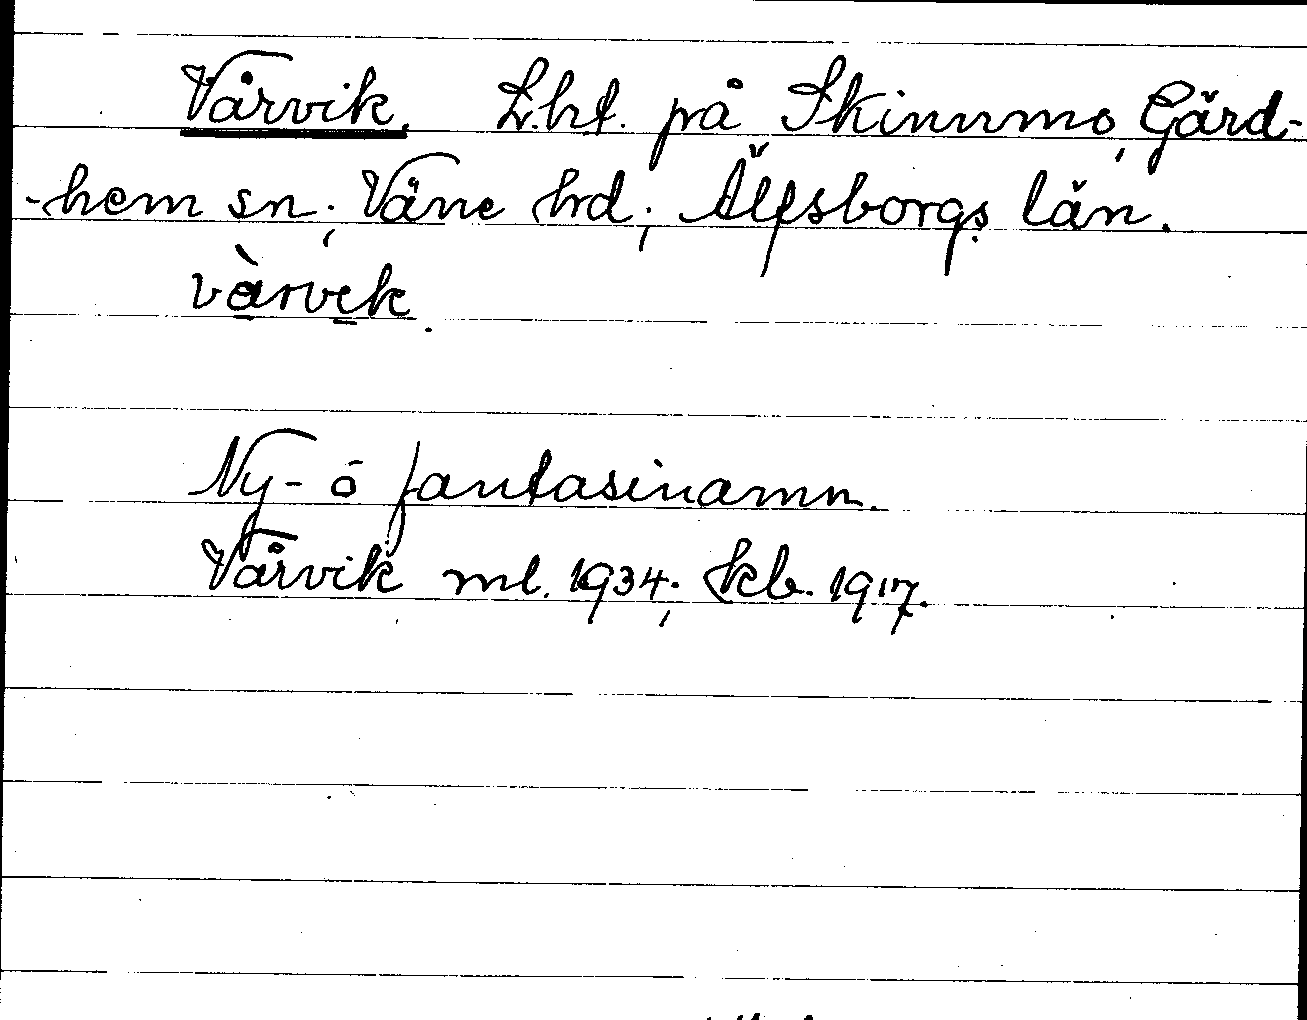 Vårvik. L.ht. på Skinnmo, Gärd-
-hem sn; Väne hd; Älfsborgs län.
vàrvek.
Ny- o fantasinamn.
Vårvik ml. 1934; kb. 1917.